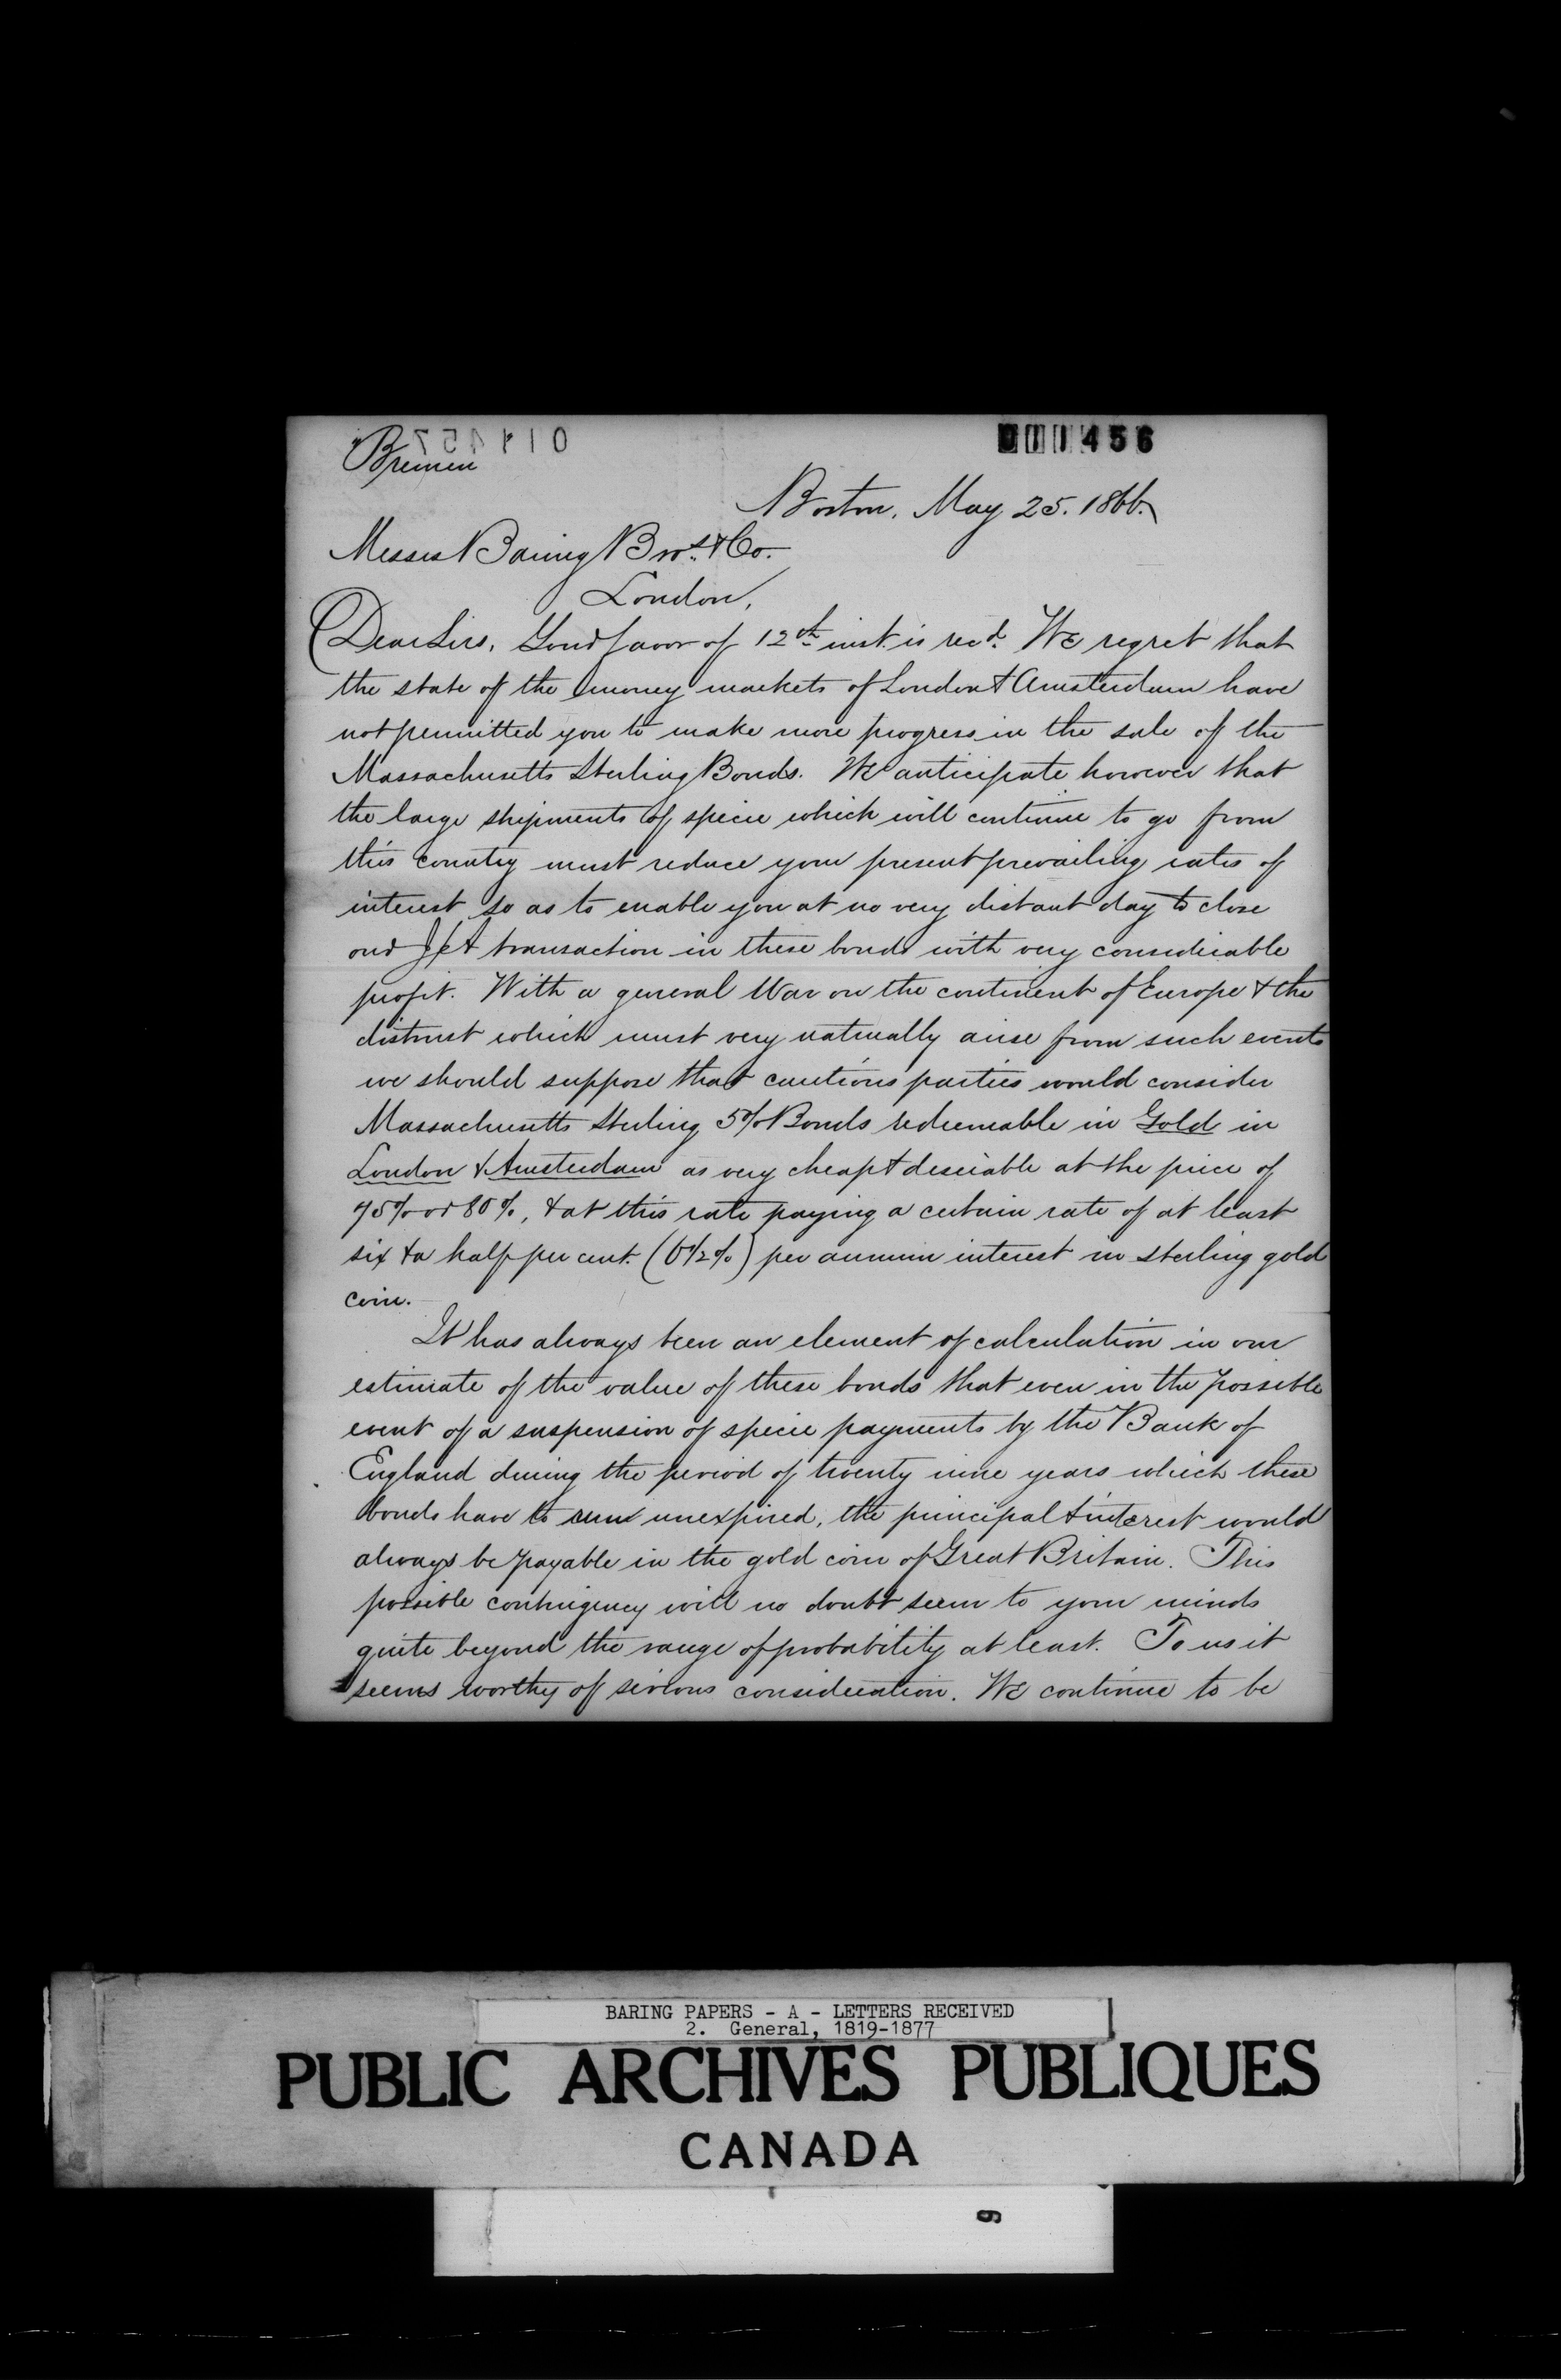 011457
011456
Bremen
Boston, May 25. 1866.
Messrs Baring Bros. & Co.
London,
Dear Sirs, Your favor of 12th inst. is recd. We regret that
the state of the money markets of London & Amsterdam have
not permitted you to make more progress in the sale of the
Massachusetts Sterling Bonds. We anticipate however that
the large shipments of specie which will continue to go from
this country must reduce your present prevailing rates of
interest so as to enable you at no very distant day to close
our J/A transaction in these bonds with very considerable
profit. With a general War on the continent of Europe & the
distrust which must very naturally arise from such events
we should suppose that cautious parties would consider
Massachusetts Sterling 5% Bonds redeemable in Gold in
London & Amsterdam as very cheap & desirable at the price of
75% or 80%, & at this rate paying a certain rate of at least
six & a half per cent. (6 1/2%) per annum interest in sterling gold
coin.
It has always been an element of calculation in our
estimate of the value of these bonds that even in the possible
event of a suspension of specie payments by the Bank of
England during the period of twenty nine years which these
bonds have to run unexpired, the principal & interest would
always be payable in the gold coin of Great Britain. This
possible contingency will no doubt seem to your minds
quite beyond the range of probability at least. To us it
seems worthy of serious consideration. We continue to be
BARING PAPERS - A - LETTERS RECEIVED
2. General, 1819-1877
PUBLIC ARCHIVES PUBLIQUES
CANADA
9